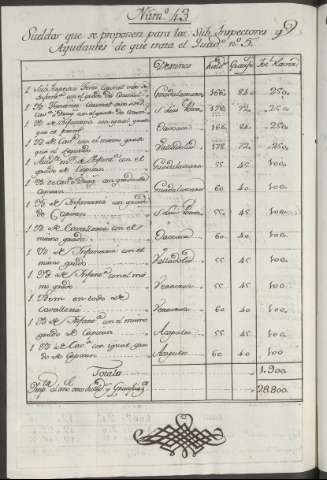 Núm.o 43
Sueldos que se proponen para los Sub-Inspectores y
Ayudantes de que trata el Estado n.o 5.
Destinos
Gratif.s
1 Sub-Inspector Ten.te Coronel
Infant.a con el grado de Coronel Guadalaxara 166. 84. 250.
S. Luis Potosi 178 72. 250.
1 Yd de Infanteria con igual grado
que el primero Oaxaca 166. 84. 250.
1 Yd de Cav.a con el mismo grado
que el segundo Valladolid 178. 72. 250.
1 Ayud.te de Infant.a con el
grado de Capitan Guadalaxara 55 45 100.
1 Yd de Cav.a con grado de
Capitan Guadalaxara 60 40 100.
1 Yd de Infanteria con grado
de Capitan S. Luis Potosi 55. 45. 100.
1 Yd de Cavalleria con el
mismo grado Oaxaca 60 40 100.
1 Yd de Infanteria con el
mismo grado Valladolid 55 45 100.
1 Yd de Infant.a con el mis
mo grado Veracruz 55 45 100.
1 Ydem en todo de
cavalleria Veracruz 60 40 100.
1 Yd de Infant.a con el mismo
grado de Capitan Acapulco 55 45 100.
1 Yd de Cav.a con igual gra
do de Capitan Acapulco 60 40 100
Total 1.900
22.800